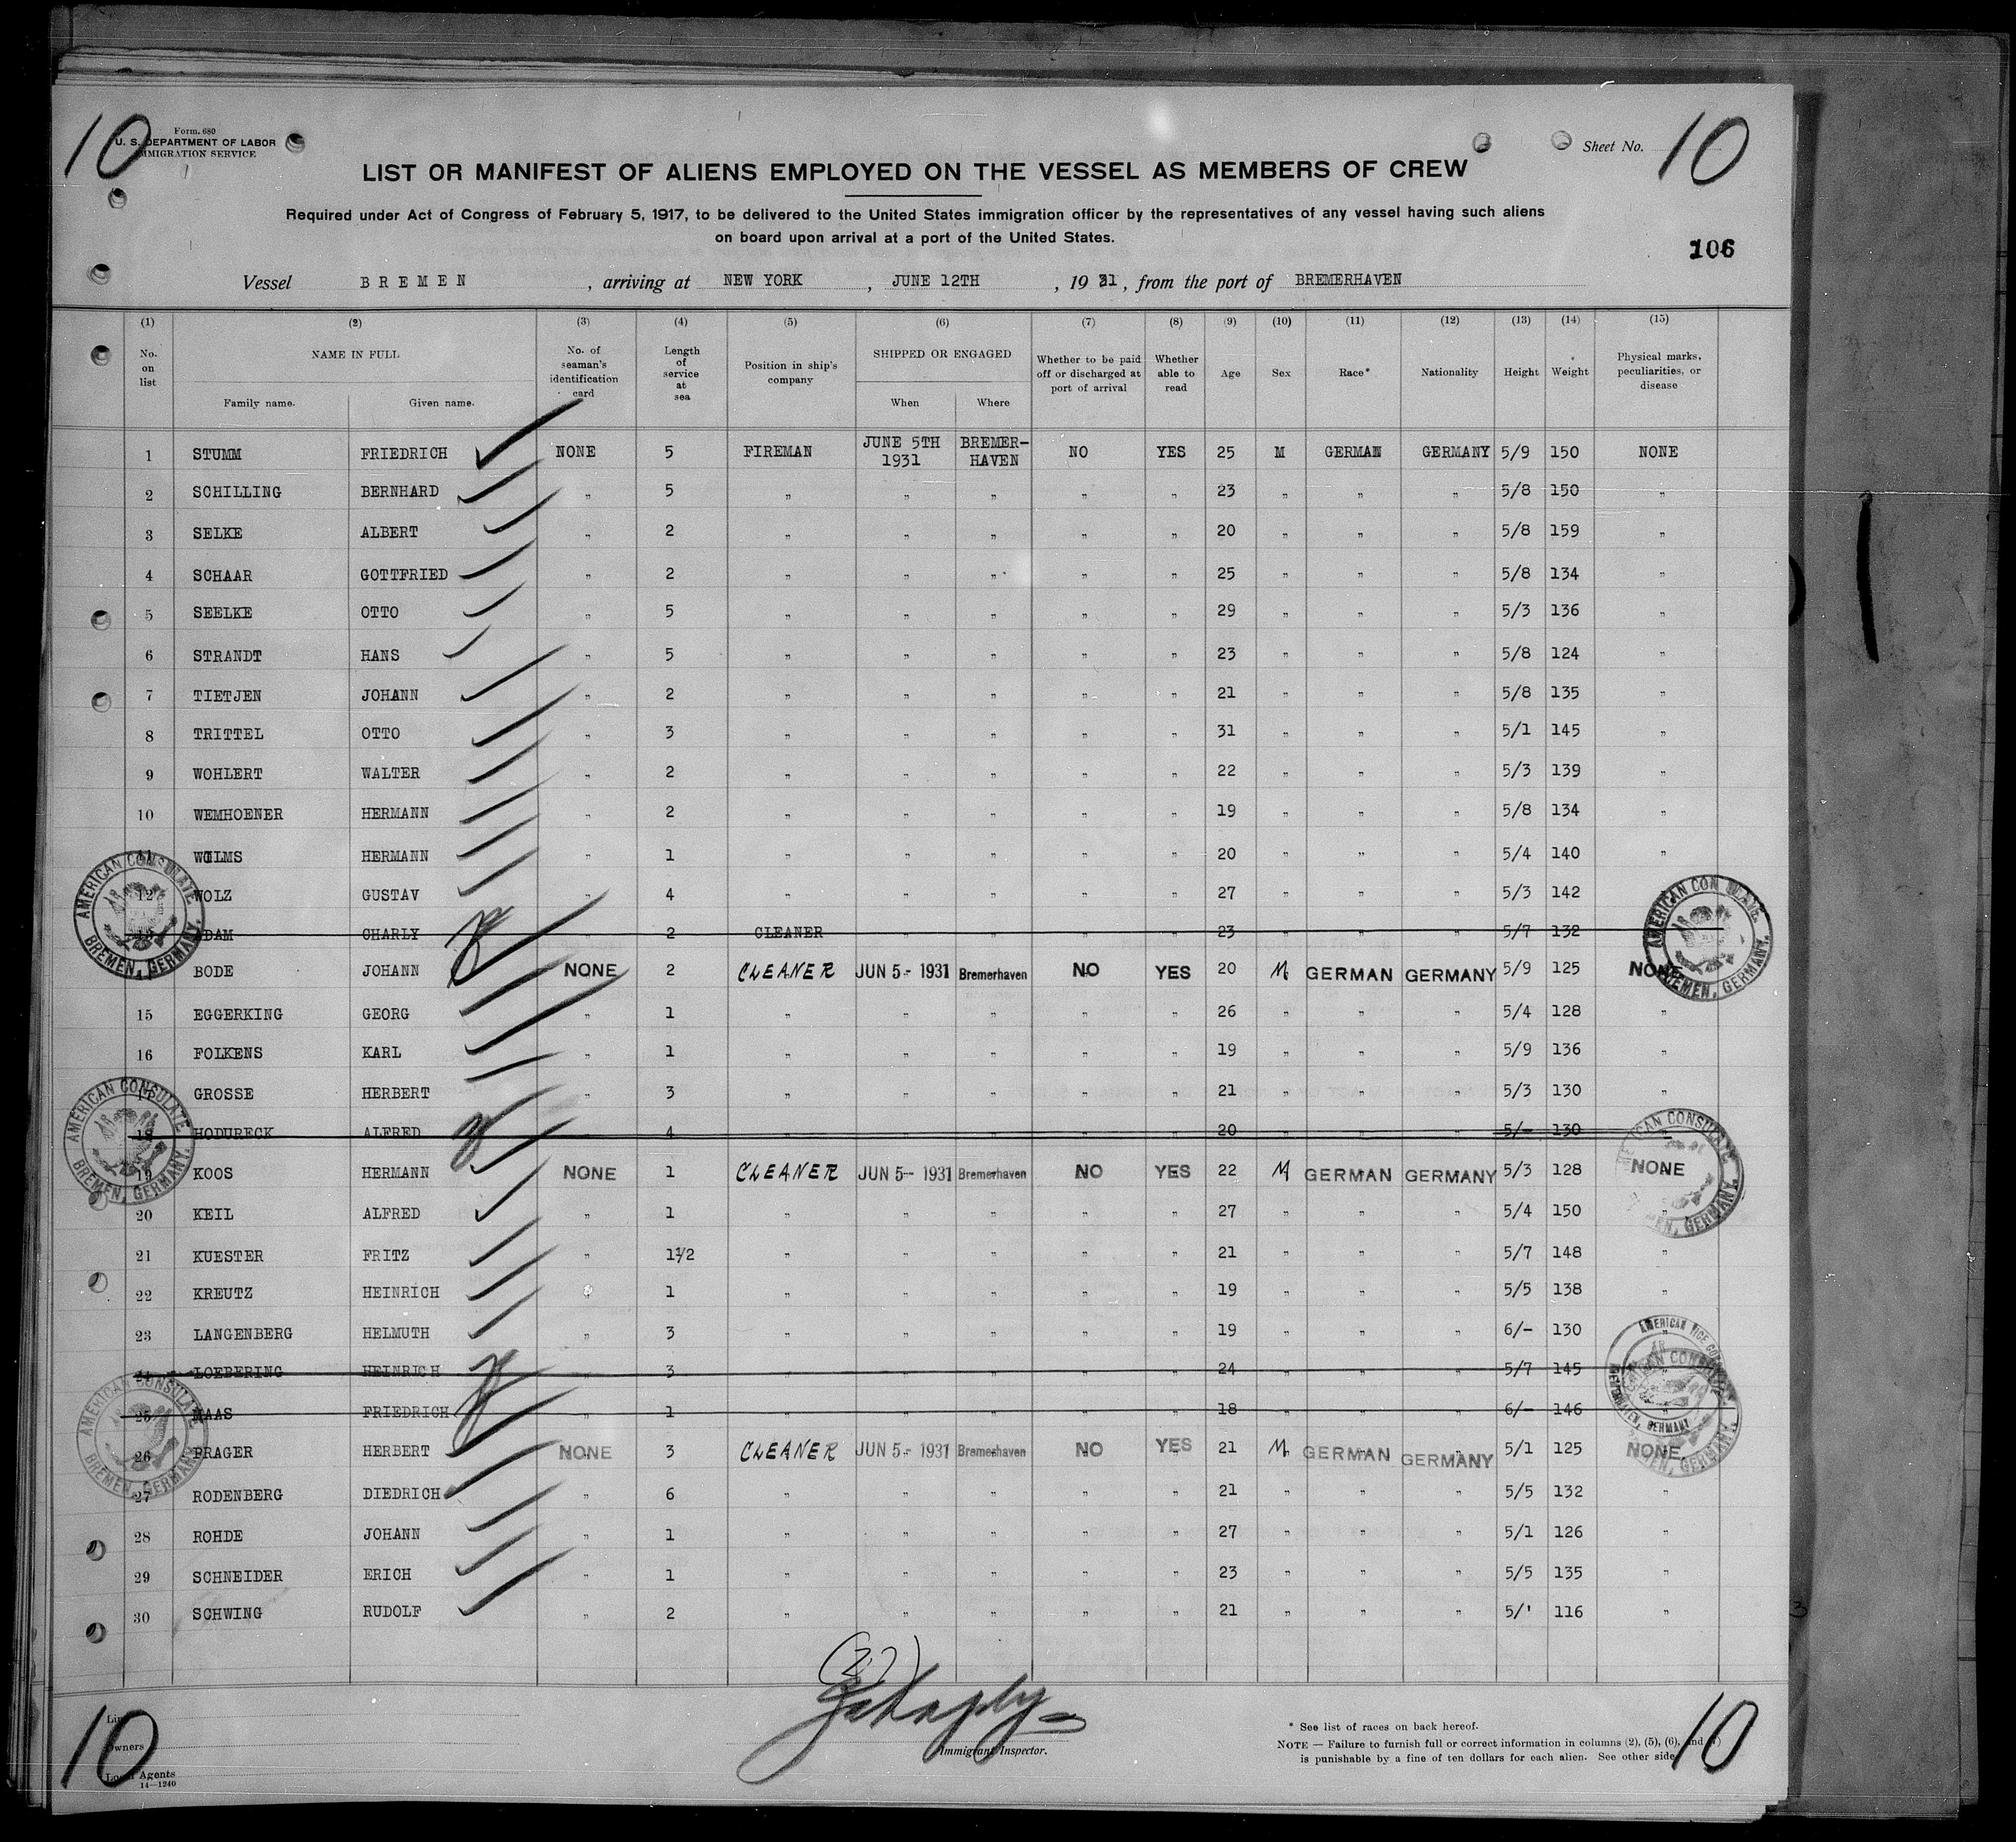 10
Form. 680
U. S. DEPARTMENT OF LABOR
IMMIGRATION SERVICE
Sheet No. 10
LIST OR MANIFEST OF ALIENS EMPLOYED ON THE VESSEL AS MEMBERS OF CREW
Required under Act of Congress of February 5, 1917, to be delivered to the United States immigration officer by the representatives of any vessel having such aliens
on board upon arrival at a port of the United States.
106
Vessel BREMEN, arriving at NEW YORK, JUNE 12TH, 1931, from the port of BREMERHAVEN
(1) (2) (3) (4) (5) (6) (7) (8) (9) (10) (11) (12) (13) (14) (15)
No. on list NAME IN FULL Family name. Given name. No. of seaman's identification card Length of service at sea Position in ship's company SHIPPED OR ENGAGED When Where Whether to be paid off or discharged at port of arrival Whether able to read Age Sex Race* Nationality Height Weight Physical marks, peculiarities, or disease
1 STUMM FRIEDRICH NONE 5 FIREMAN JUNE 5TH 1931 BREMER-HAVEN NO YES 25 M GERMAN GERMANY 5/9 150 NONE
2 SCHILLING BERNHARD " 5 " " " " " 23 " " " 5/8 150 "
3 SELKE ALBERT " 2 " " " " " 20 " " " 5/8 159 "
4 SCHAAR GOTTFRIED " 2 " " " " " 25 " " " 5/8 134 "
5 SEELKE OTTO " 5 " " " " " 29 " " " 5/3 136 "
6 STRANDT HANS " 5 " " " " " 23 " " " 5/8 124 "
7 TIETJEN JOHANN " 2 " " " " " 21 " " " 5/8 135 "
8 TRITTEL OTTO " 3 " " " " " 31 " " " 5/1 145 "
9 WOHLERT WALTER " 2 " " " " " 22 " " " 5/3 139 "
10 WEMHOENER HERMANN " 2 " " " " " 19 " " " 5/8 134 "
11 WILMS HERMANN " 1 " " " " " 20 " " " 5/4 140 "
12 WOLZ GUSTAV " 4 " " " " " 27 " " " 5/3 142 "
13 ADAM CHARLY 2 CLEANER " " " " 23 " " " 5/7 132
BODE JOHANN NONE 2 CLEANER JUN 5-1931 Bremerhaven NO YES 20 M GERMAN GERMANY 5/9 125 NONE
15 EGGERKING GEORG " 1 " " " " " 26 " " " 5/4 128 "
16 FOLKENS KARL " 1 " " " " " 19 " " " 5/9 136 "
17 GROSSE HERBERT " 3 " " " " " 21 " " " 5/3 130 "
18 HODURECK ALFRED 4 " " " " " 20 " " " 5/- 130 "
19 KOOS HERMANN NONE 1 CLEANER JUN 5-1931 Bremerhaven NO YES 22 M GERMAN GERMANY 5/3 128 NONE
20 KEIL ALFRED " 1 " " " " " 27 " " " 5/4 150 "
21 KUESTER FRITZ " 1 1/2 " " " " " 21 " " " 5/7 148 "
22 KREUTZ HEINRICH " 1 " " " " " 19 " " " 5/5 138 "
23 LANGENBERG HELMUTH " 3 " " " " " 19 " " " 6/- 130 "
24 LOEBERING HEINRICH " 3 " " " " " 24 " " " 5/7 145 "
25 MAAS FRIEDRICH " 1 " " " " " 18 " " " 6/- 146 "
26 PRAGER HERBERT NONE 3 CLEANER JUN 5-1931 Bremerhaven NO YES 21 M GERMAN GERMANY 5/1 125 NONE
27 RODENBERG DIEDRICH " 6 " " " " " 21 " " " 5/5 132 "
28 ROHDE JOHANN " 1 " " " " " 27 " " " 5/1 126 "
29 SCHNEIDER ERICH " 1 " " " " " 23 " " " 5/5 135 "
30 SCHWING RUDOLF " 2 " " " " " 21 " " " 5/' 116 "
AMERICAN CONSULATE BREMEN, GERMANY.
AMERICAN CONSULATE BREMEN, GERMANY.
AMERICAN CONSULATE BREMEN, GERMANY.
AMERICAN CONSULATE BREMEN, GERMANY.
AMERICAN CONSULATE BREMEN, GERMANY.
AMERICAN VICE CONSULATE BREMERHAVEN, GERMANY
(27)
Immigrant Inspector.
10
Owners
Local Agents
14—1240
* See list of races on back hereof.
NOTE — Failure to furnish full or correct information in columns (2), (5), (6), and (7)
is punishable by a fine of ten dollars for each alien. See other side.
10